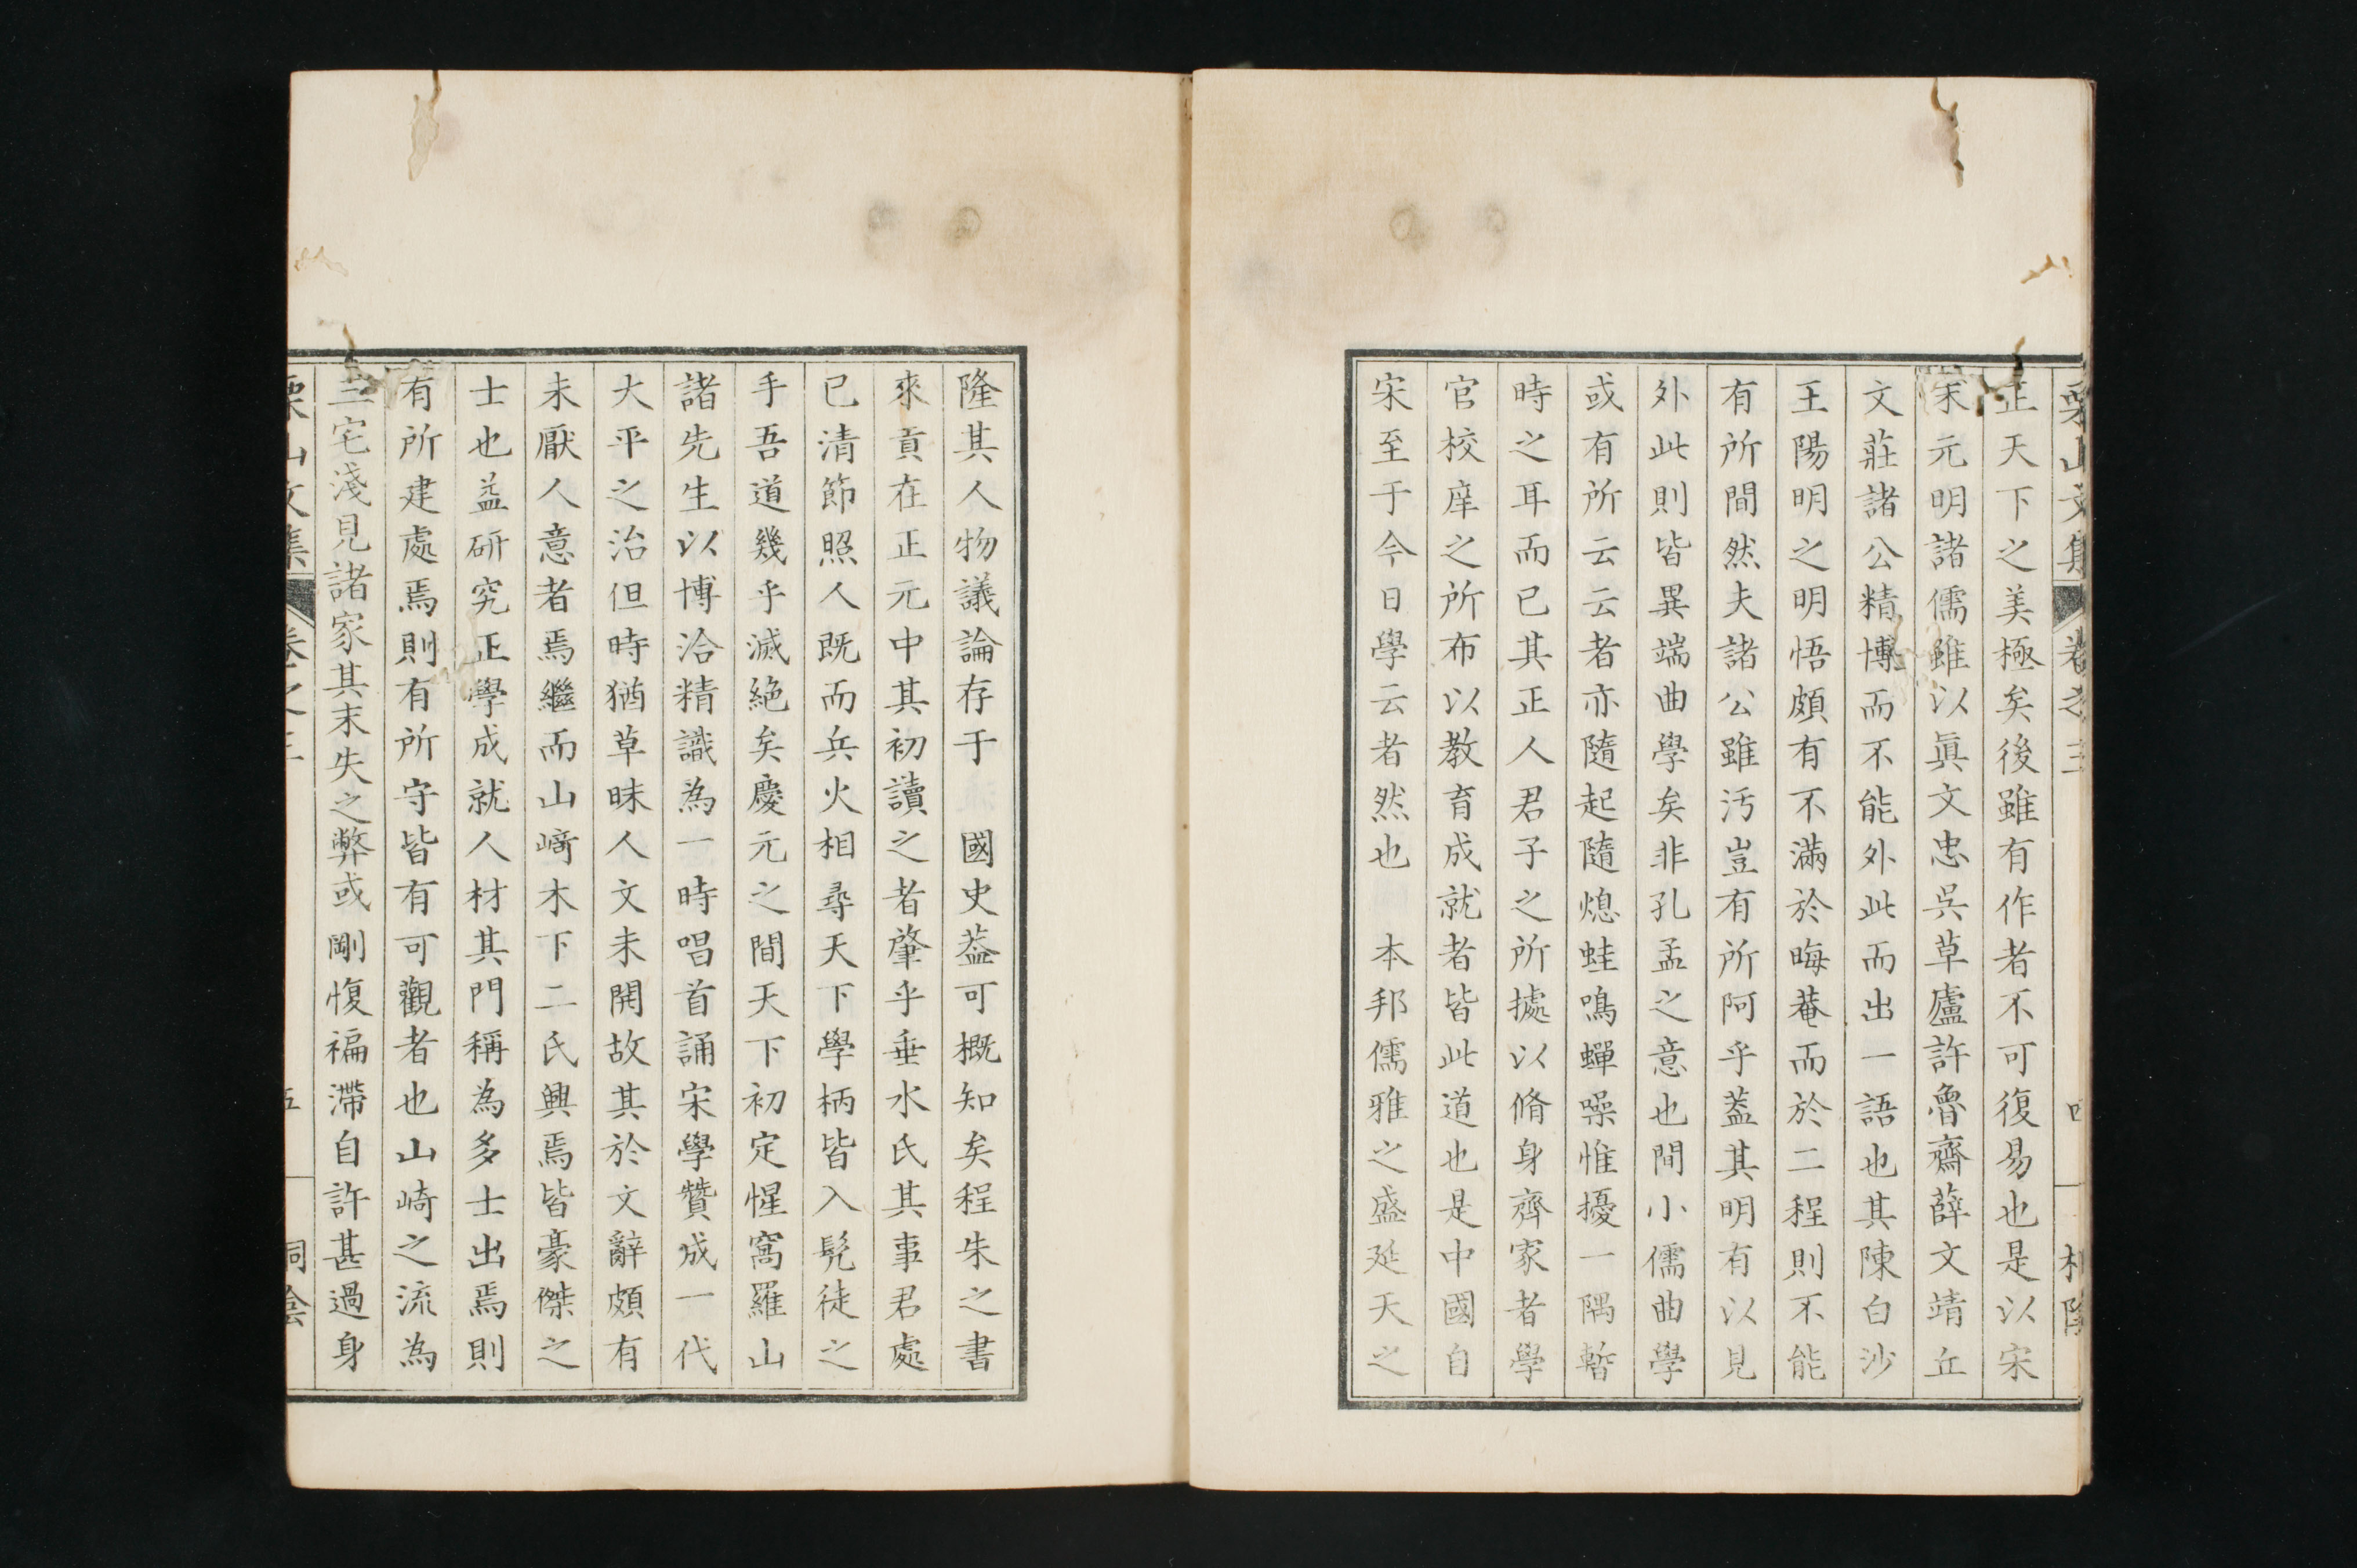 栗山文集 卷之三 四
正天下之美極矣後雖有作者不可復易也是以宋
末元明諸儒雖以眞文忠吳草廬許魯齋薛文靖丘
文莊諸公精博而不能外此而出一語也其陳白沙
王陽明之明悟頗有不滿於晦菴而於二程則不能
有所間然夫諸公雖汚豈有所阿乎葢其明有以見
外此則皆異端曲學矣非孔孟之意也間小儒曲學
或有所云云者亦隨起隨熄蛙鳴蟬噪惟擾一隅暫
時之耳而已其正人君子之所據以脩身齊家者學
官校庠之所布以教育成就者皆此道也是中國自
宋至于今日學云者然也　本邦儒雅之盛延天之
隆其人物議論存于　國史葢可概知矣程朱之書
來貢在正元中其初讀之者肇乎垂水氏其事君處
已清節照人既而兵火相尋天下學柄皆入髡徒之
手吾道幾乎滅絶矣慶元之間天下初定惺窩羅山
諸先生以博洽精識為一時唱首誦宋學贊成一代
大平之治但時猶草昧人文未開故其於文辭頗有
未厭人意者焉繼而山﨑木下二氏興焉皆豪傑之
士也益研究正學成就人材其門稱為多士出焉則
有所建處焉則有所守皆有可觀者也山崎之流為
三宅淺見諸家其末失之弊或剛愎褊滯自許甚過身
栗山文集 卷之三 五 桐陰